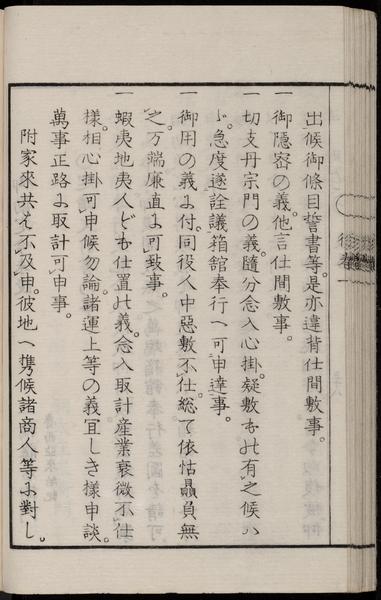 出候御條目誓書等。是亦違背仕間敷事。
一御隱密の義。他言仕間敷事。
一切支丹宗門の義。隨分念入心掛。疑敷もの有之候ハ
ゞ。急度遂詮議箱舘奉行へ可申達事。
一御用の義に付。同役人中惡敷不仕。總て依怙贔負無
之。万端廉直に可致事。
一蝦夷地夷人ども仕置の義。念入取計產業衰微不仕
樣。相心掛可申候勿論諸運上等の義。宜しき樣申談。
萬事正路に取計可申事。
附家來共は不及申。彼地へ携候諸商人等に對し。